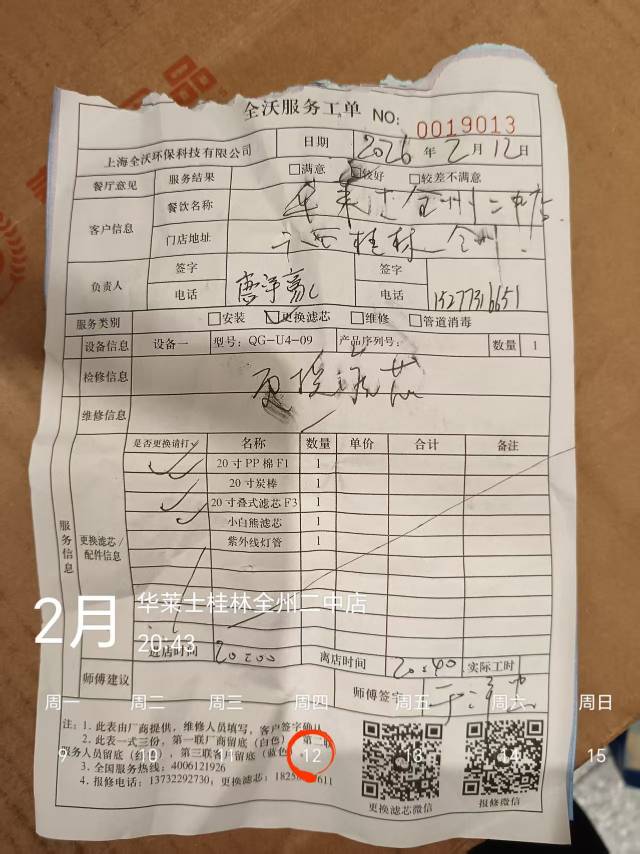 全沃服务工单 NO: 0019013
上海全沃环保科技有限公司 日期 2026年2月12日
餐厅意见 服务结果 □满意 □较好 □较差不满意
客户信息 餐饮名称 华莱士全州二中店
门店地址 广西桂林 全州
负责人 签字 签字
电话 电话 15277316651
服务类别 □安装 ☑更换滤芯 □维修 □管道消毒
设备信息 设备一 型号：QG-U4-09 产品序列号： 数量 1
检修信息 更换滤芯
维修信息
服务信息
更换滤芯/配件信息
是否更换请打✓ 名称 数量 单价 合计 备注
✓ 20寸PP棉F1 1
20寸炭棒 1
✓ 20寸叠式滤芯F3 1
✓ 小白熊滤芯 1
紫外线灯管 1
2月
华莱士桂林全州二中店
20:43
进店时间 20:00 离店时间 20:40 实际工时
师傅建议 师傅签字
周一 周二 周三 周四 周五 周六 周日
9 10 11 12 13 14 15
注：1. 此表由厂商提供，维修人员填写，客户签字确认
2. 此表一式三份，第一联厂商留底（白色） 第二联
服务人员留底（红色），第三联客户留底（蓝色）
3. 全国服务热线：4006121926
4. 报修电话：13732292730；更换滤芯：
更换滤芯微信 报修微信